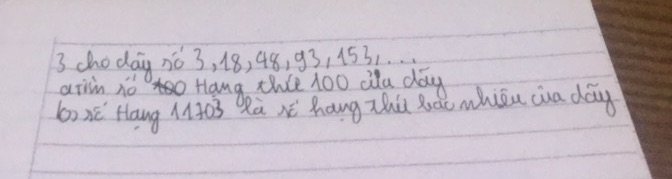 3 cho dãy số 3, 18, 48, 93, 153, ...
a tìm số Hạng thứ 100 của dãy
b) số Hạng 11703 là số hạng thứ bao nhiêu của dãy